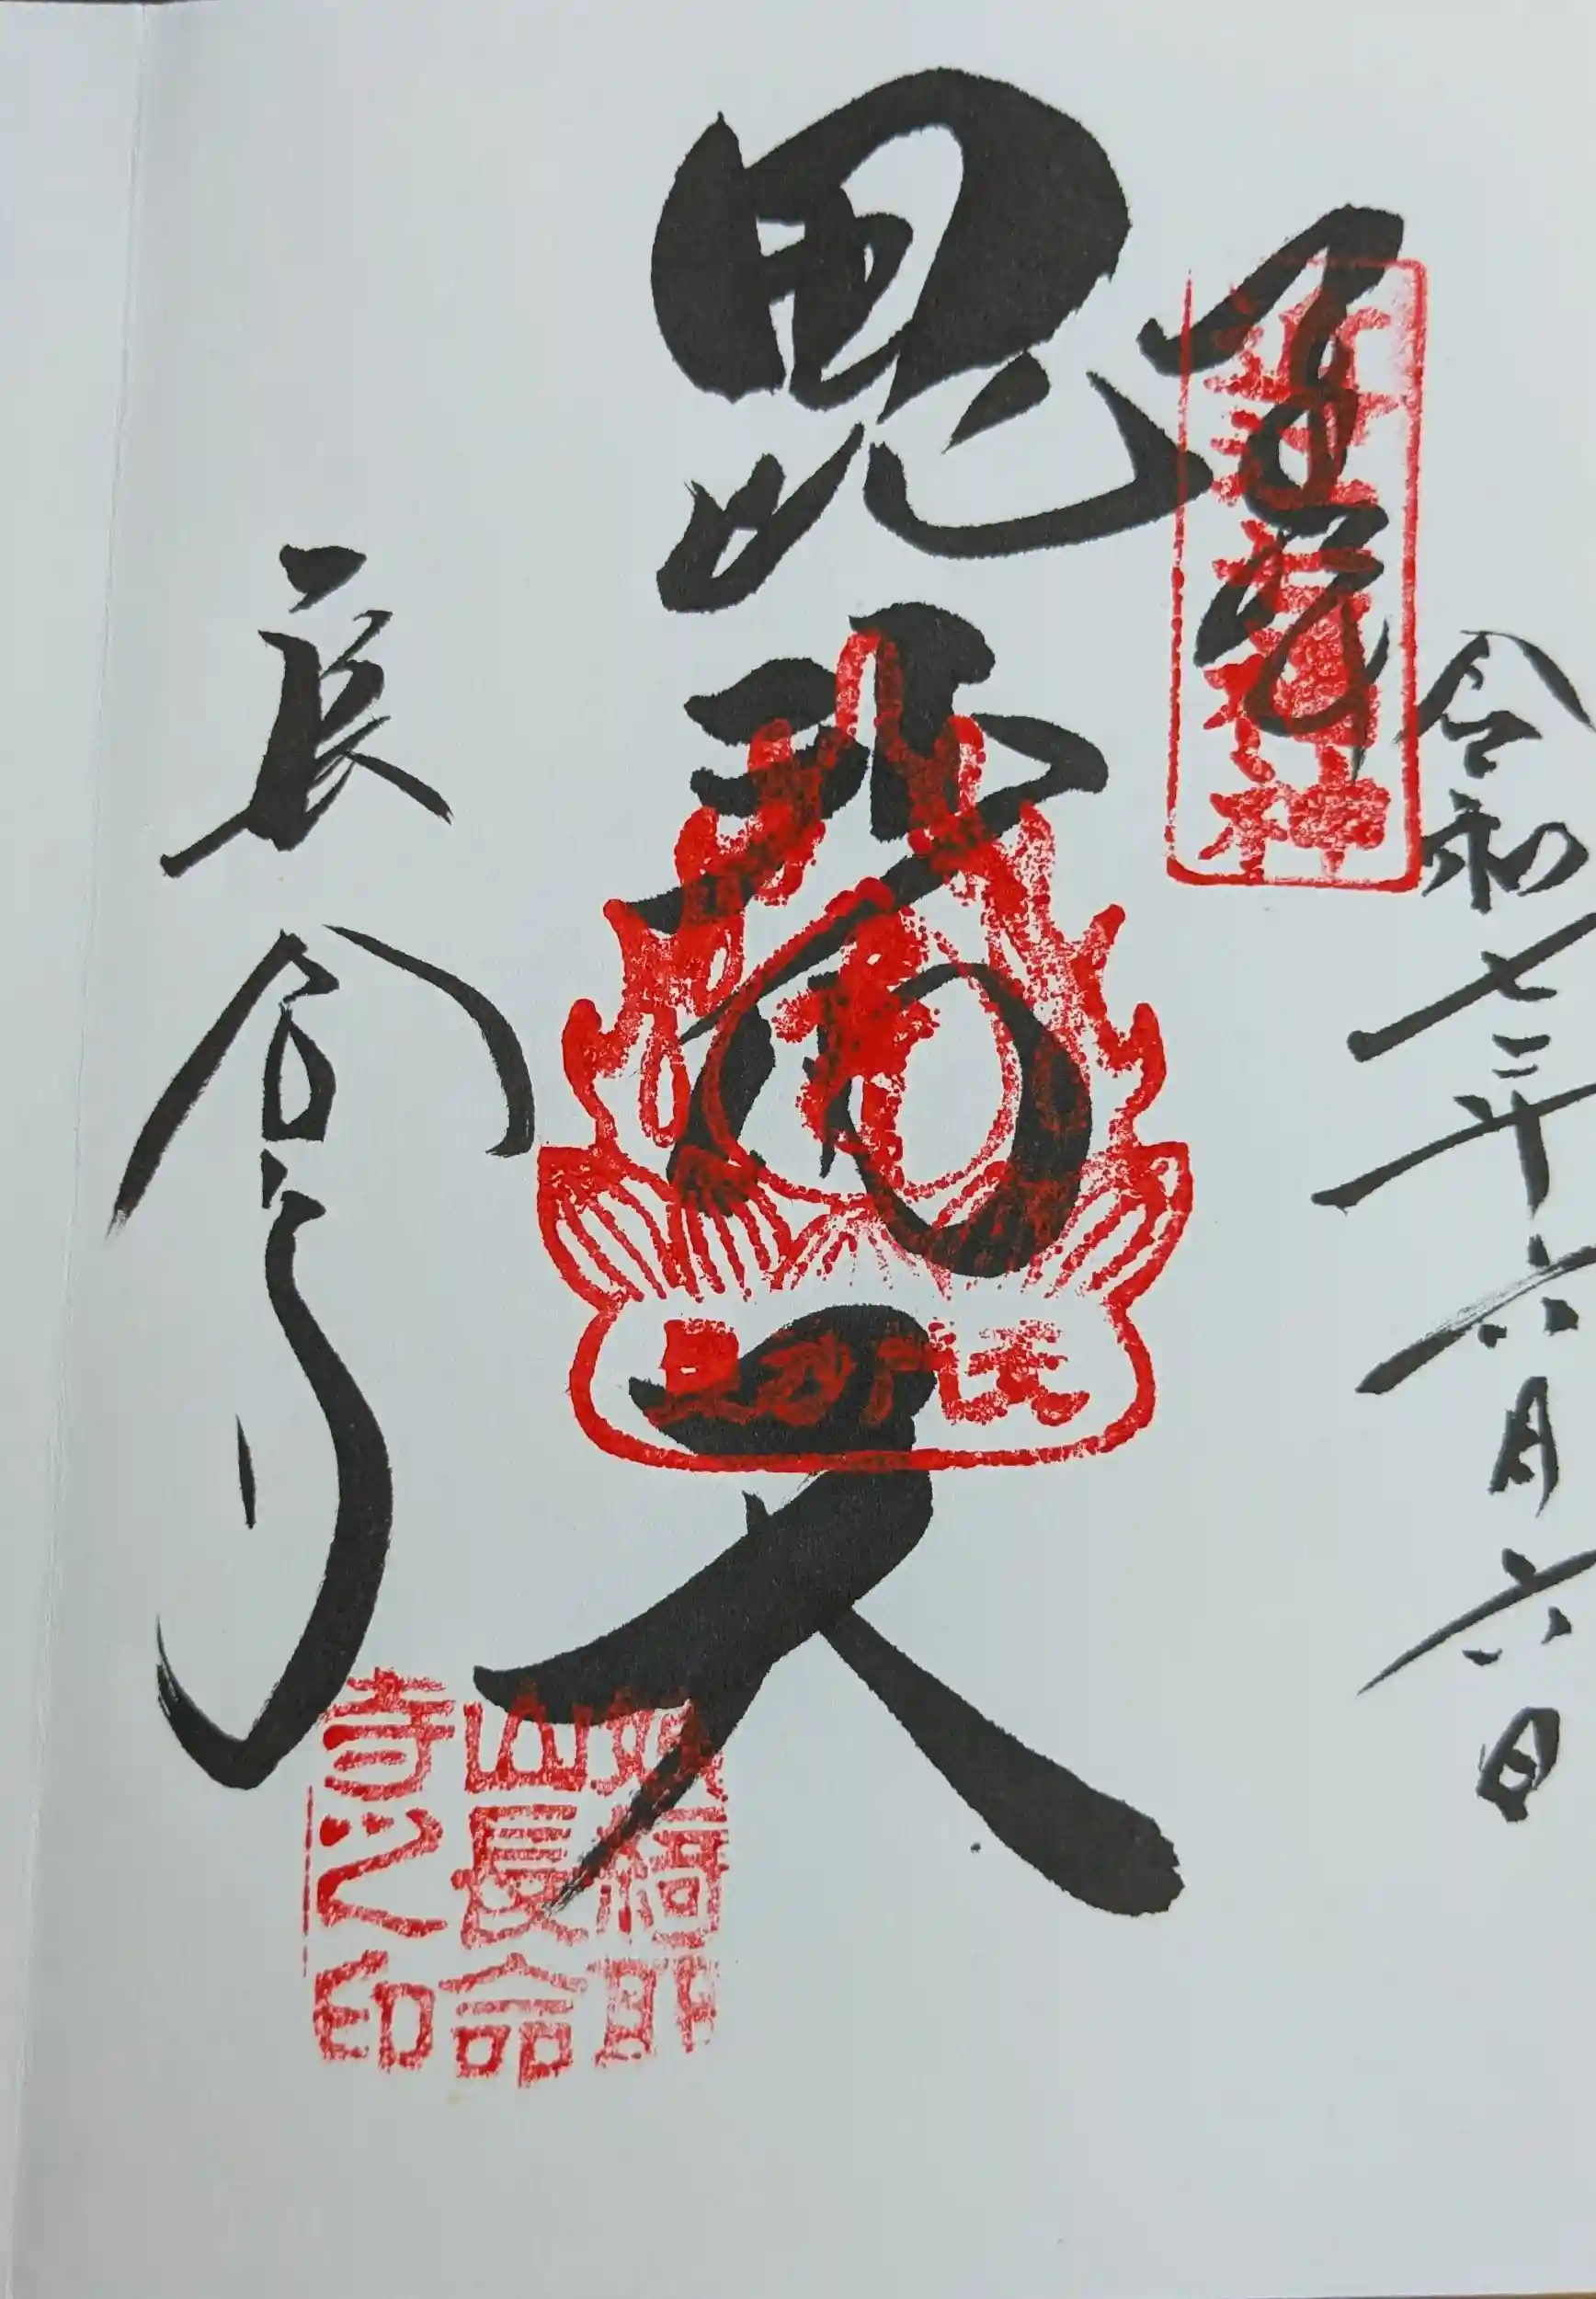 令和七年六月六日
奉拝
毘沙門天
長命寺
姨綺耶
山長命
寺之印